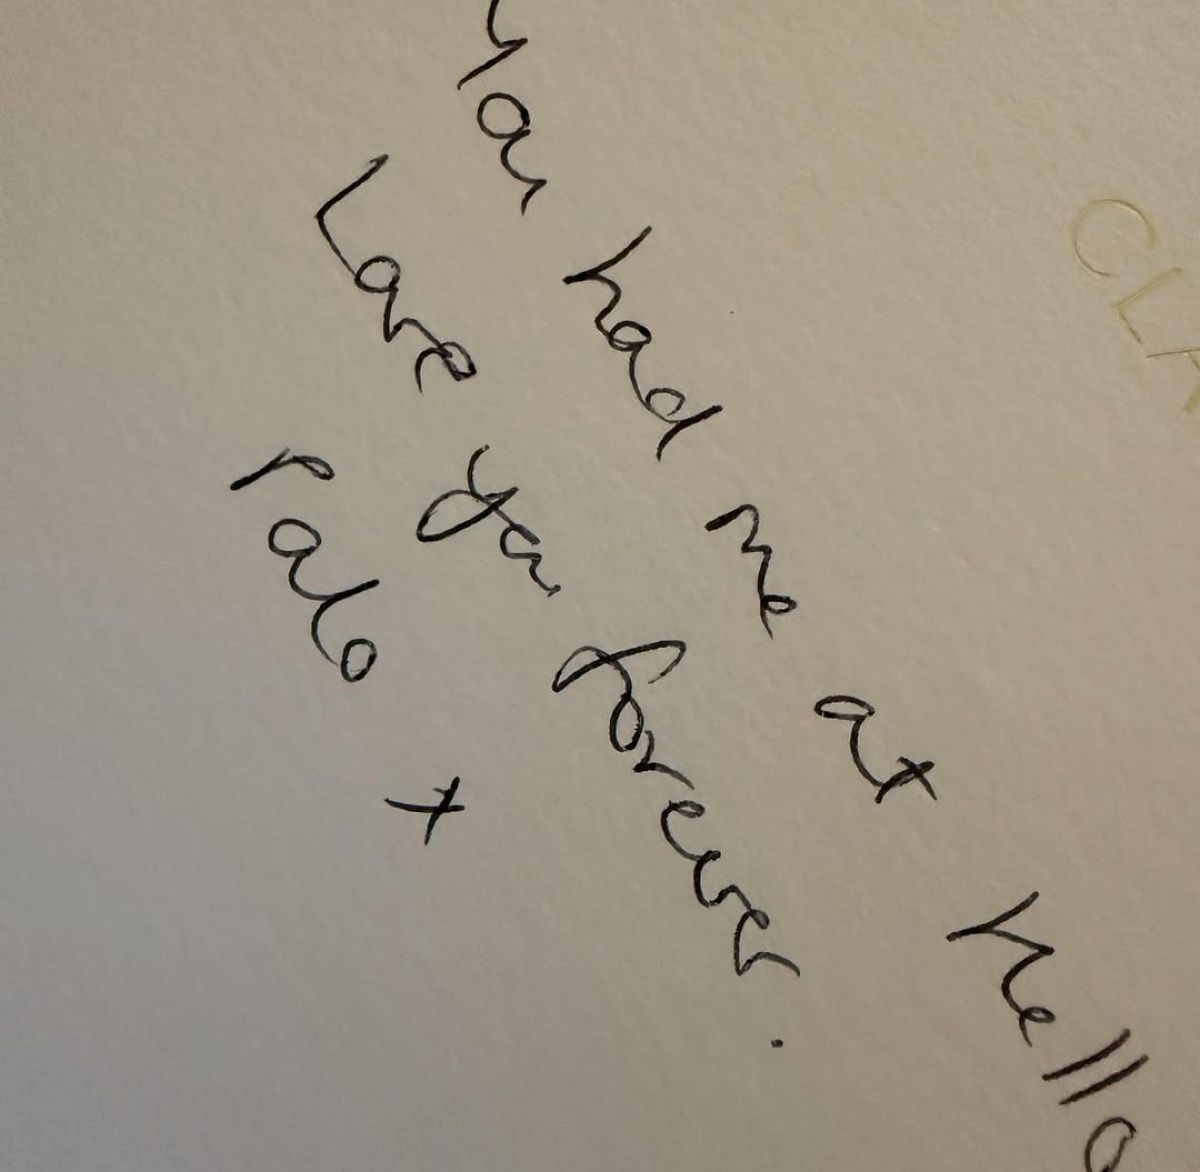 You had me at hello
Love you forever.
Pablo x
CLA